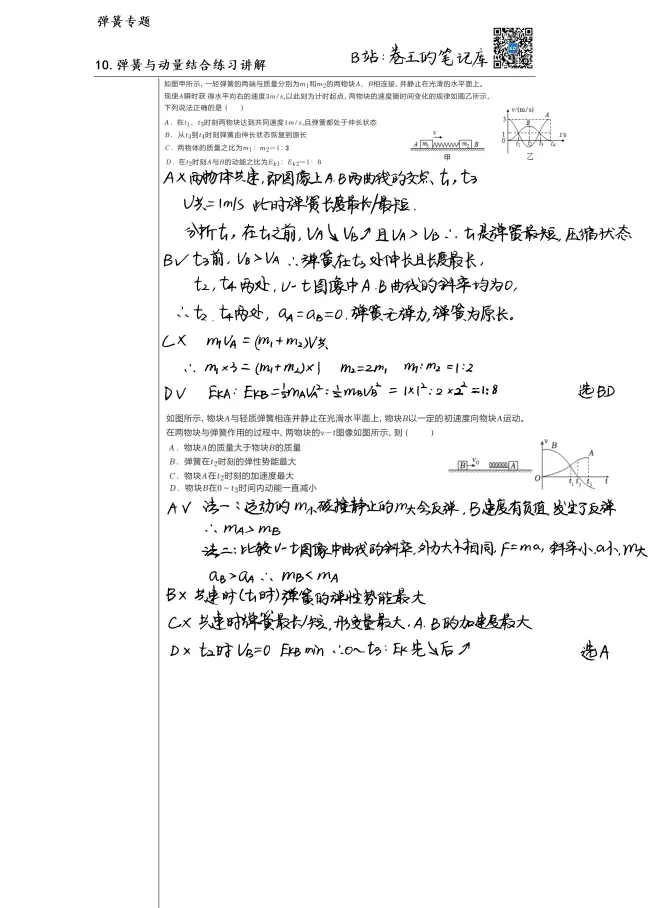 弹簧专题
10.弹簧与动量结合练习讲解
B站:卷王的笔记库
如图甲所示，一轻弹簧的两端与质量分别为m₁和m₂的两物块A、B相连接，并静止在光滑的水平面上。
现使A瞬时获 得水平向右的速度3m/s，以此刻为计时起点，两物块的速度随时间变化的规律如图乙所示，
下列说法正确的是（ ）
A．在t₁、t₃时刻两物块达到共同速度1m/s，且弹簧都处于伸长状态
B．从t₃到t₄时刻弹簧由伸长状态恢复到原长
C．两物体的质量之比为m₁：m₂=1：3
D．在t₂时刻A与B的动能之比为Eₖ₁：Eₖ₂=1：8
v
A m₁ m₂ B
甲
v/(m/s)
3
1
0
A
B
t₁ t₂ t₃ t₄
t/s
乙
A× 两物体共速，即图像上A.B两曲线的交点、t₁，t₃
V共=1m/s 此时弹簧长度最长/最短.
分析t₁，在t₁之前，VA↘VB↗且VA>VB ∴t₁是弹簧最短，压缩状态
B√ t₃前，VB>VA ∴弹簧在t₃处伸长且长度最长，
t₂，t₄两处，V-t图像中A.B曲线的斜率均为0，
∴t₂.t₄两处，aA=aB=0.弹簧无弹力，弹簧为原长。
C× m₁VA=(m₁+m₂)V共
∴ m₁×3=(m₁+m₂)×1 m₂=2m₁ m₁:m₂=1:2
D√ EKA:EKB=½mAVA²:½mBVB²=1×1²:2×2²=1:8 选BD
如图所示，物块A与轻质弹簧相连并静止在光滑水平面上，物块B以一定的初速度向物块A运动。
在两物块与弹簧作用的过程中，两物块的v−t图像如图所示，则（ ）
A．物块A的质量大于物块B的质量
B．弹簧在t₂时刻的弹性势能最大
C．物块A在t₂时刻的加速度最大
D．物块B在0~t₃时间内动能一直减小
B v₀ A
v
B
A
O
t₁ t₂ t₃
t
A√ 法一:运动的m小碰撞静止的m大会反弹，B速度有负值，发生了反弹
∴mA>mB
法二:比较V-t图像中曲线的斜率，外力大小相同，F=ma，斜率小，a小，m大
aB>aA ∴mB<mA
B× 共速时(t₁时)弹簧的弹性势能最大
C× 共速时弹簧最长/短，形变量最大，A.B的加速度最大
D× t₂时VB=0 EKB min ∴0~t₃:EK先↘后↗ 选A